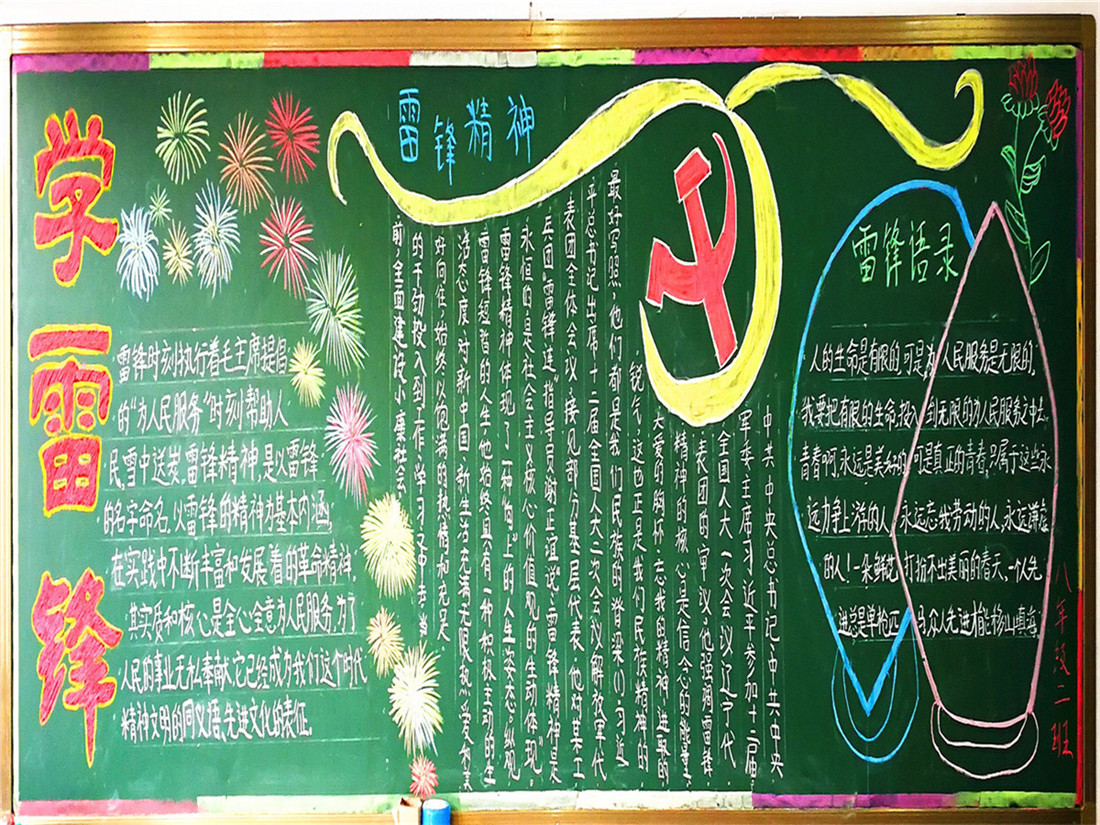 学雷锋
雷锋时刻执行着毛主席提倡
的"为人民服务"时刻帮助人
民,雪中送炭,雷锋精神,是以雷锋
的名字命名,以雷锋的精神为基本内涵,
在实践中不断丰富和发展着的革命精神,
其实质和核心是全心全意为人民服务,为了
人民的事业无私奉献,它已经成为我们这个时代
精神文明的同义语,先进文化的表征。
雷锋精神
中共中央总书记、中共中央
军委主席习近平参加十二届
全国人大一次会议辽宁代
表团的审议,他强调雷锋
精神的核心是信念的能量
大爱的胸怀、忘我的精神进取的
锐气,这也正是我们民族精神的
最好写照,他们都是我们民族的脊梁(1)习近
平总书记出席十二届全国人大二次会议解放军代
表团全体会议接见部分基层代表,他对某工
兵团"雷锋连"指导员谢正谊说:雷锋精神是
永恒的是社会主义核心价值观的生动体现"
雷锋精神体现了一种"向上"的人生姿态。纵观
雷锋短暂的人生他始终具有一种积极主动的生
活态度,对新中国、新生活充满无限热爱和美
好向往,始终以饱满的热情和充足
的干劲投入到工作、学习之中去,当
前,全面建设小康社会
雷锋语录
人的生命是有限的,可是,为人民服务是无限的,
我要把有限的生命,投入到无限的为人民服务之中去,
青春啊,永远是美好的,可是真正的青春,只属于这些永
远力争上游的人,永远忘我劳动的人,永远谦虚
的人!一朵鲜花打扮不出美丽的春天,一个人先
进总是单枪匹马,众人先进才能移山填海
八年级二班